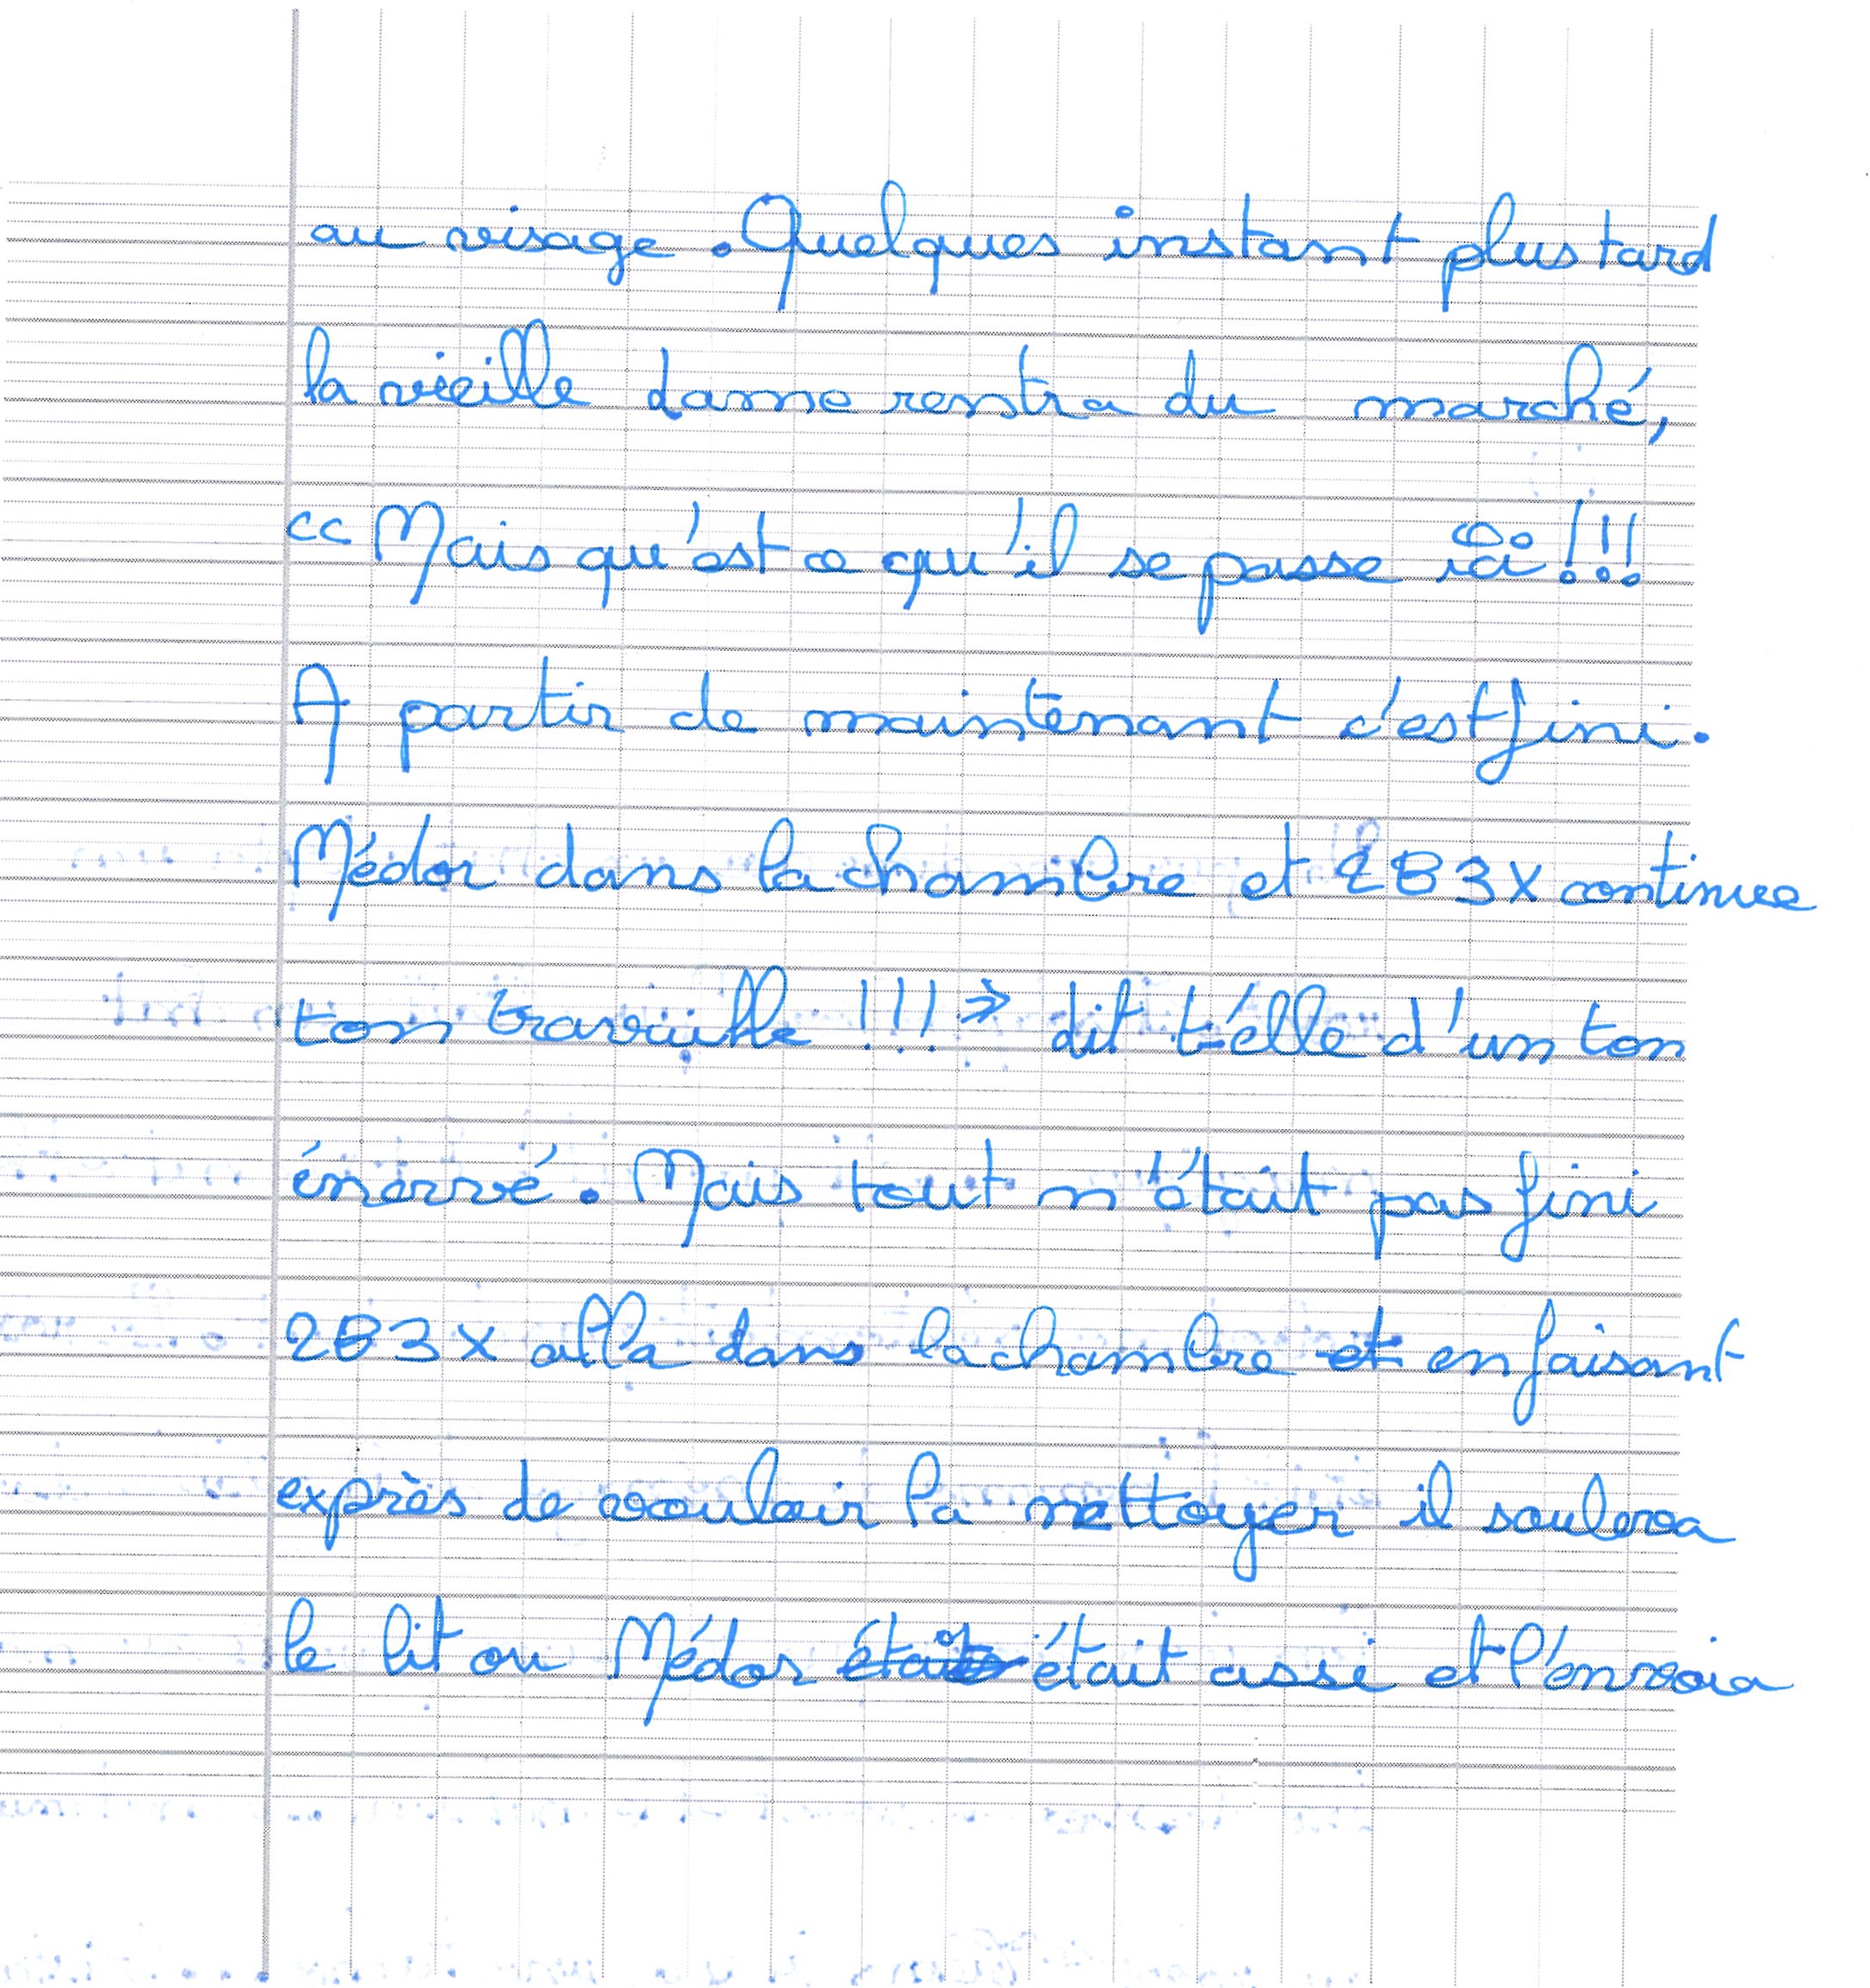 au visage. Quelques instant plus tard
la vieille dame rentra du marché,
« Mais qu'est ce qu'il se passe ici !!!
A partir de maintenant c'est fini.
Médor dans la chambre et 2B3X continue
ton travaille !!! » dit t-elle d'un ton
énervé. Mais tout n'était pas fini
2B3X alla dans la chambre et en faisant
exprès de vouloir la nettoyer il souleva
le lit ou Médor était était assi et l'envoia